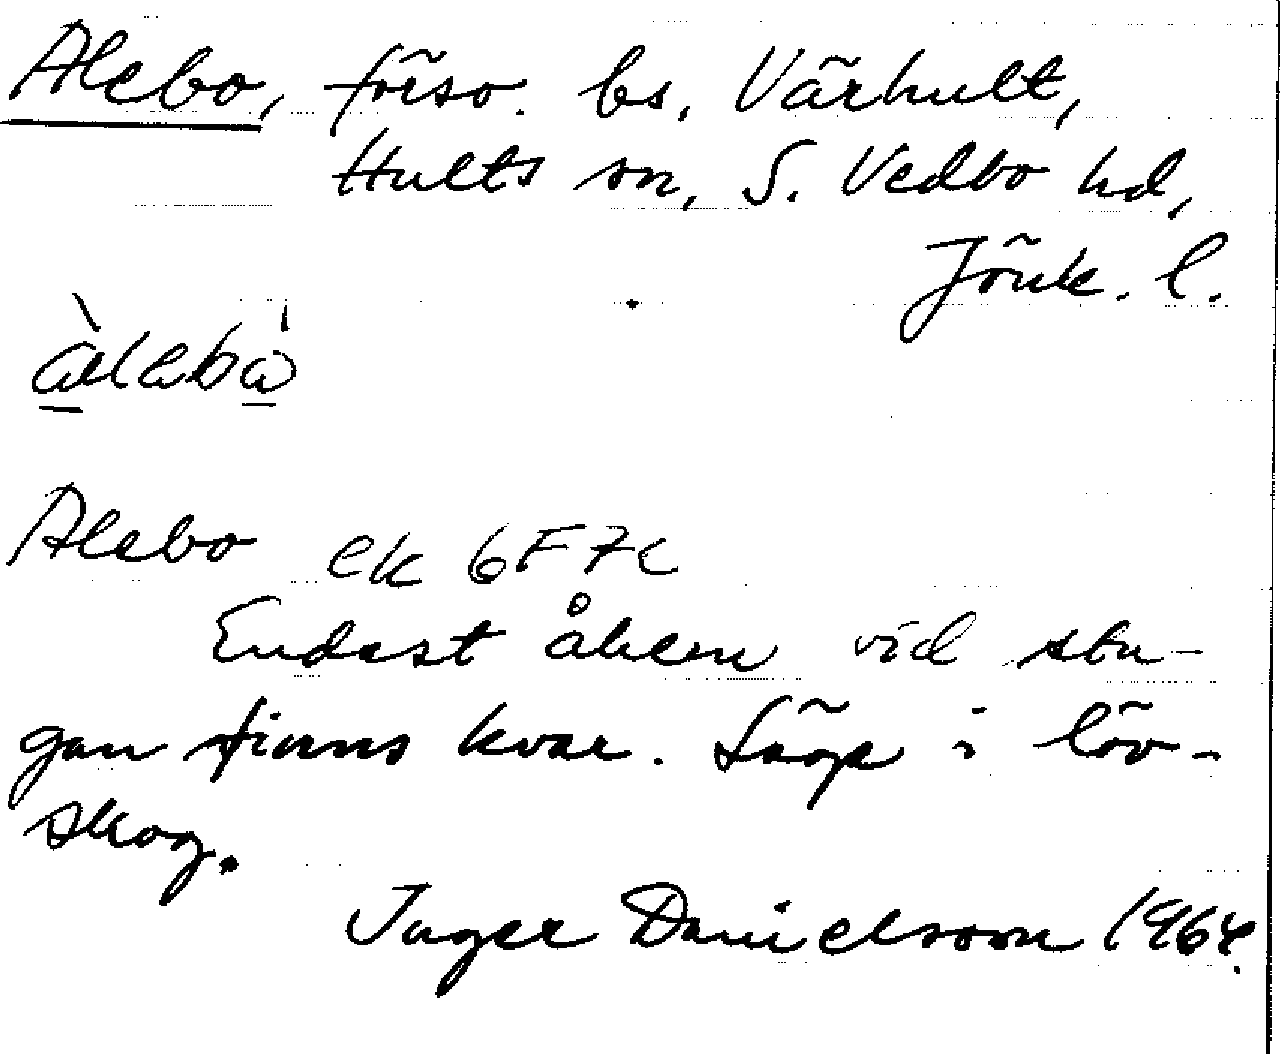 Alebo, försv. bs. Värhult,
Hults sn, S. Vedbo hd,
Jönk. l.
Alebo ek 6F7c
Endast åkern vid stu-
gan finns kvar. Läge i löv-
skog.
Inger Danielsson 1964.